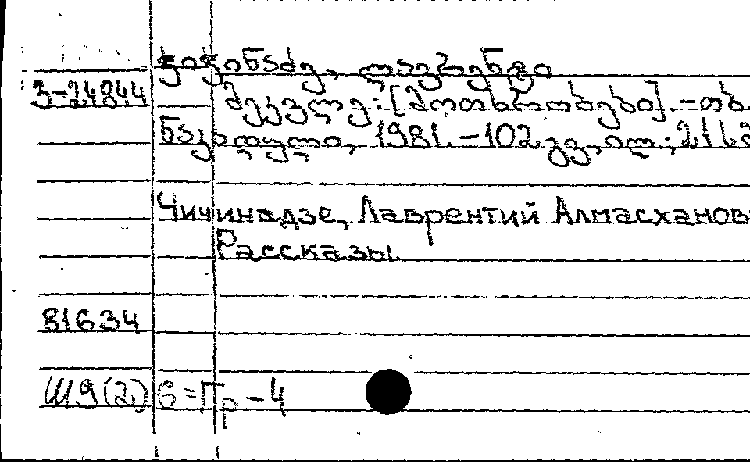 ჭიჭინაძე, ლავრენტი
3-24844
მეკვლე: [მოთხრობები]. - თბ.
ნაკადული, 1981. - 102 გვ., ილ.; 21
Чичинадзе, Лаврентий Алмасханов
Рассказы.
81634
Ш9(2)6=Гр-4